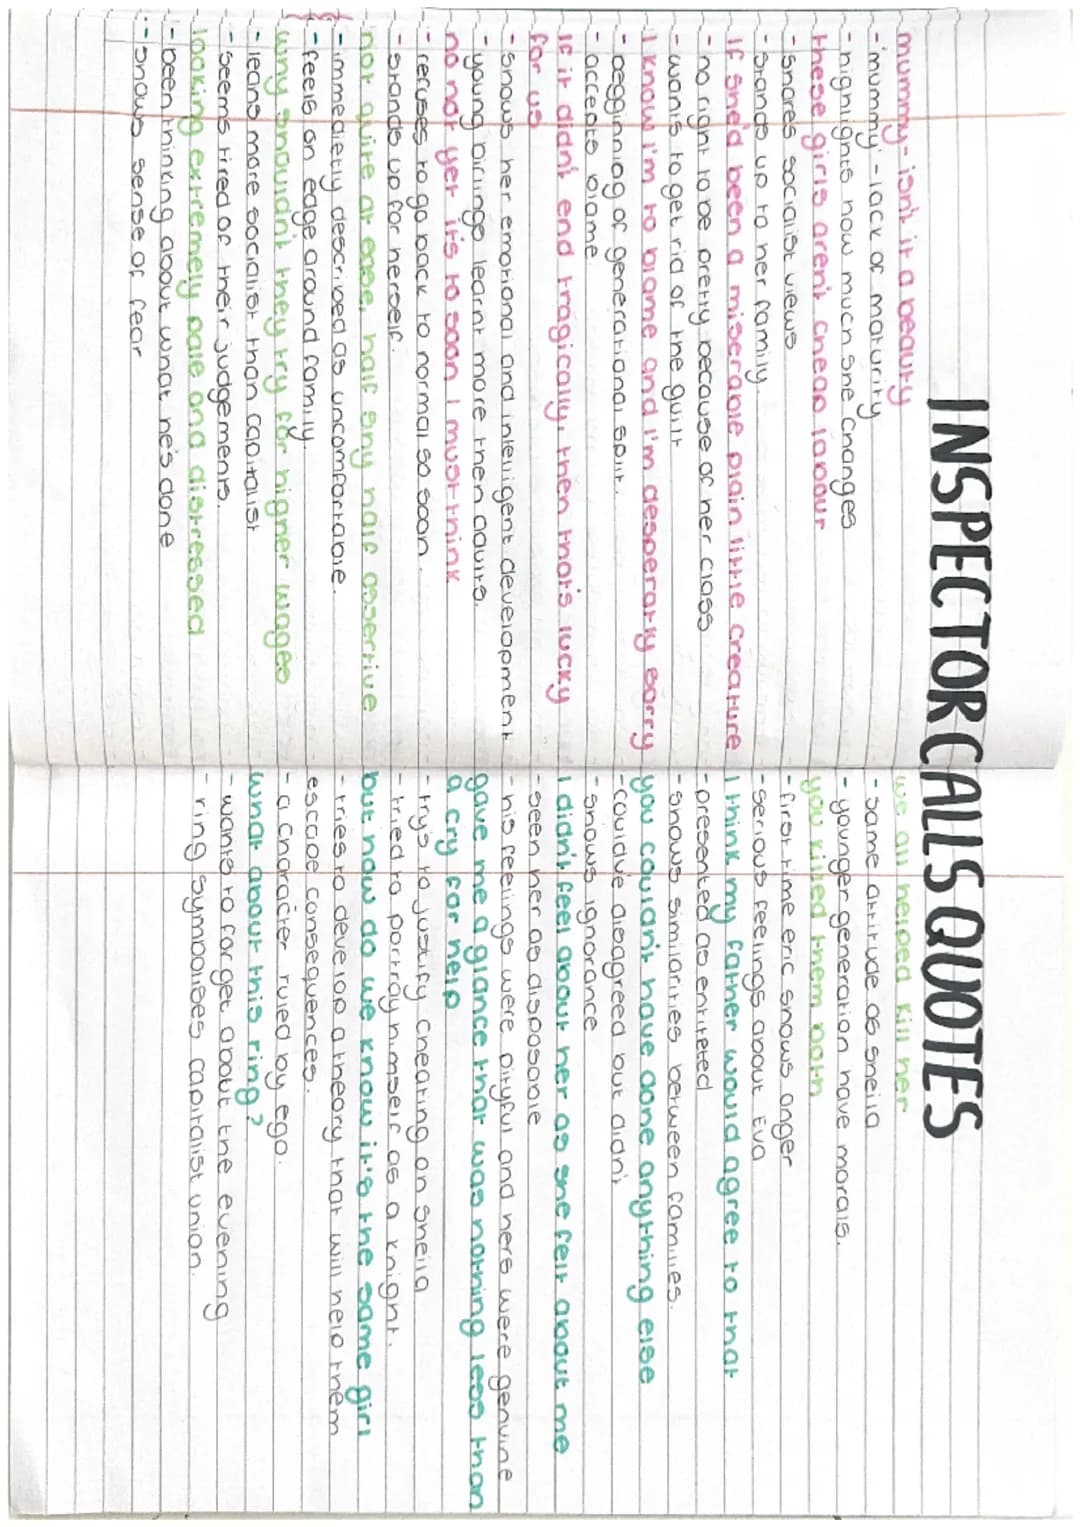 INSPECTOR CALLS QUOTES
mummy- isn't it a beauty
- 'mummy' - lack of maturity
- highlights how much she changes
these girls aren't cheap labour
- shares socialist views
- stands up to her family.
If she'd been a miserable plain little creature
- no right to be pretty because of her class
- wants to get rid of the guilt
I know I'm to blame and I'm desperatly sorry
- beggining of generational split.
- accepts blame.
If it didn't end tragically, then that's lucky
for us
- shows her emotional and intelligent development
- young biringe learnt more then adults.
no not yet it's to soon I must think
- refuses to go back to normal so soon.
- stands up for herself.
not quite at ease, half shy half assertive
- immedietly described as uncomfortable.
- feels on edge around family.
why shouldn't they try for higher wages
- leans more socialist than capitalist
- seems tired of their judgements.
looking extremely pale and distressed
- been thinking about what he's done
- shows sense of fear
we all helped kill her
- same attitude as sheila
- younger generation have morals.
you killed them both
- first time eric shows anger
- serious feelings about Eva
I think my father would agree to that
- presented as entitled
- shows similarities between families.
you couldn't have done anything else
- could've disagreed but didn't
- shows ignorance
I didn't feel about her as she felt about me
- seen her as disposable
- his feelings were pityful and hers were genuine
gave me a glance that was nothing less than
a cry for help
- try's to justify cheating on sheila
- tried to portray himself as a knight.
but how do we know it's the same girl
- tries to develop a theory that will help them
escape consequences.
- a character ruled by ego.
what about this ring?
- wants to forget about the evening
- ring symbolises capitalist union.